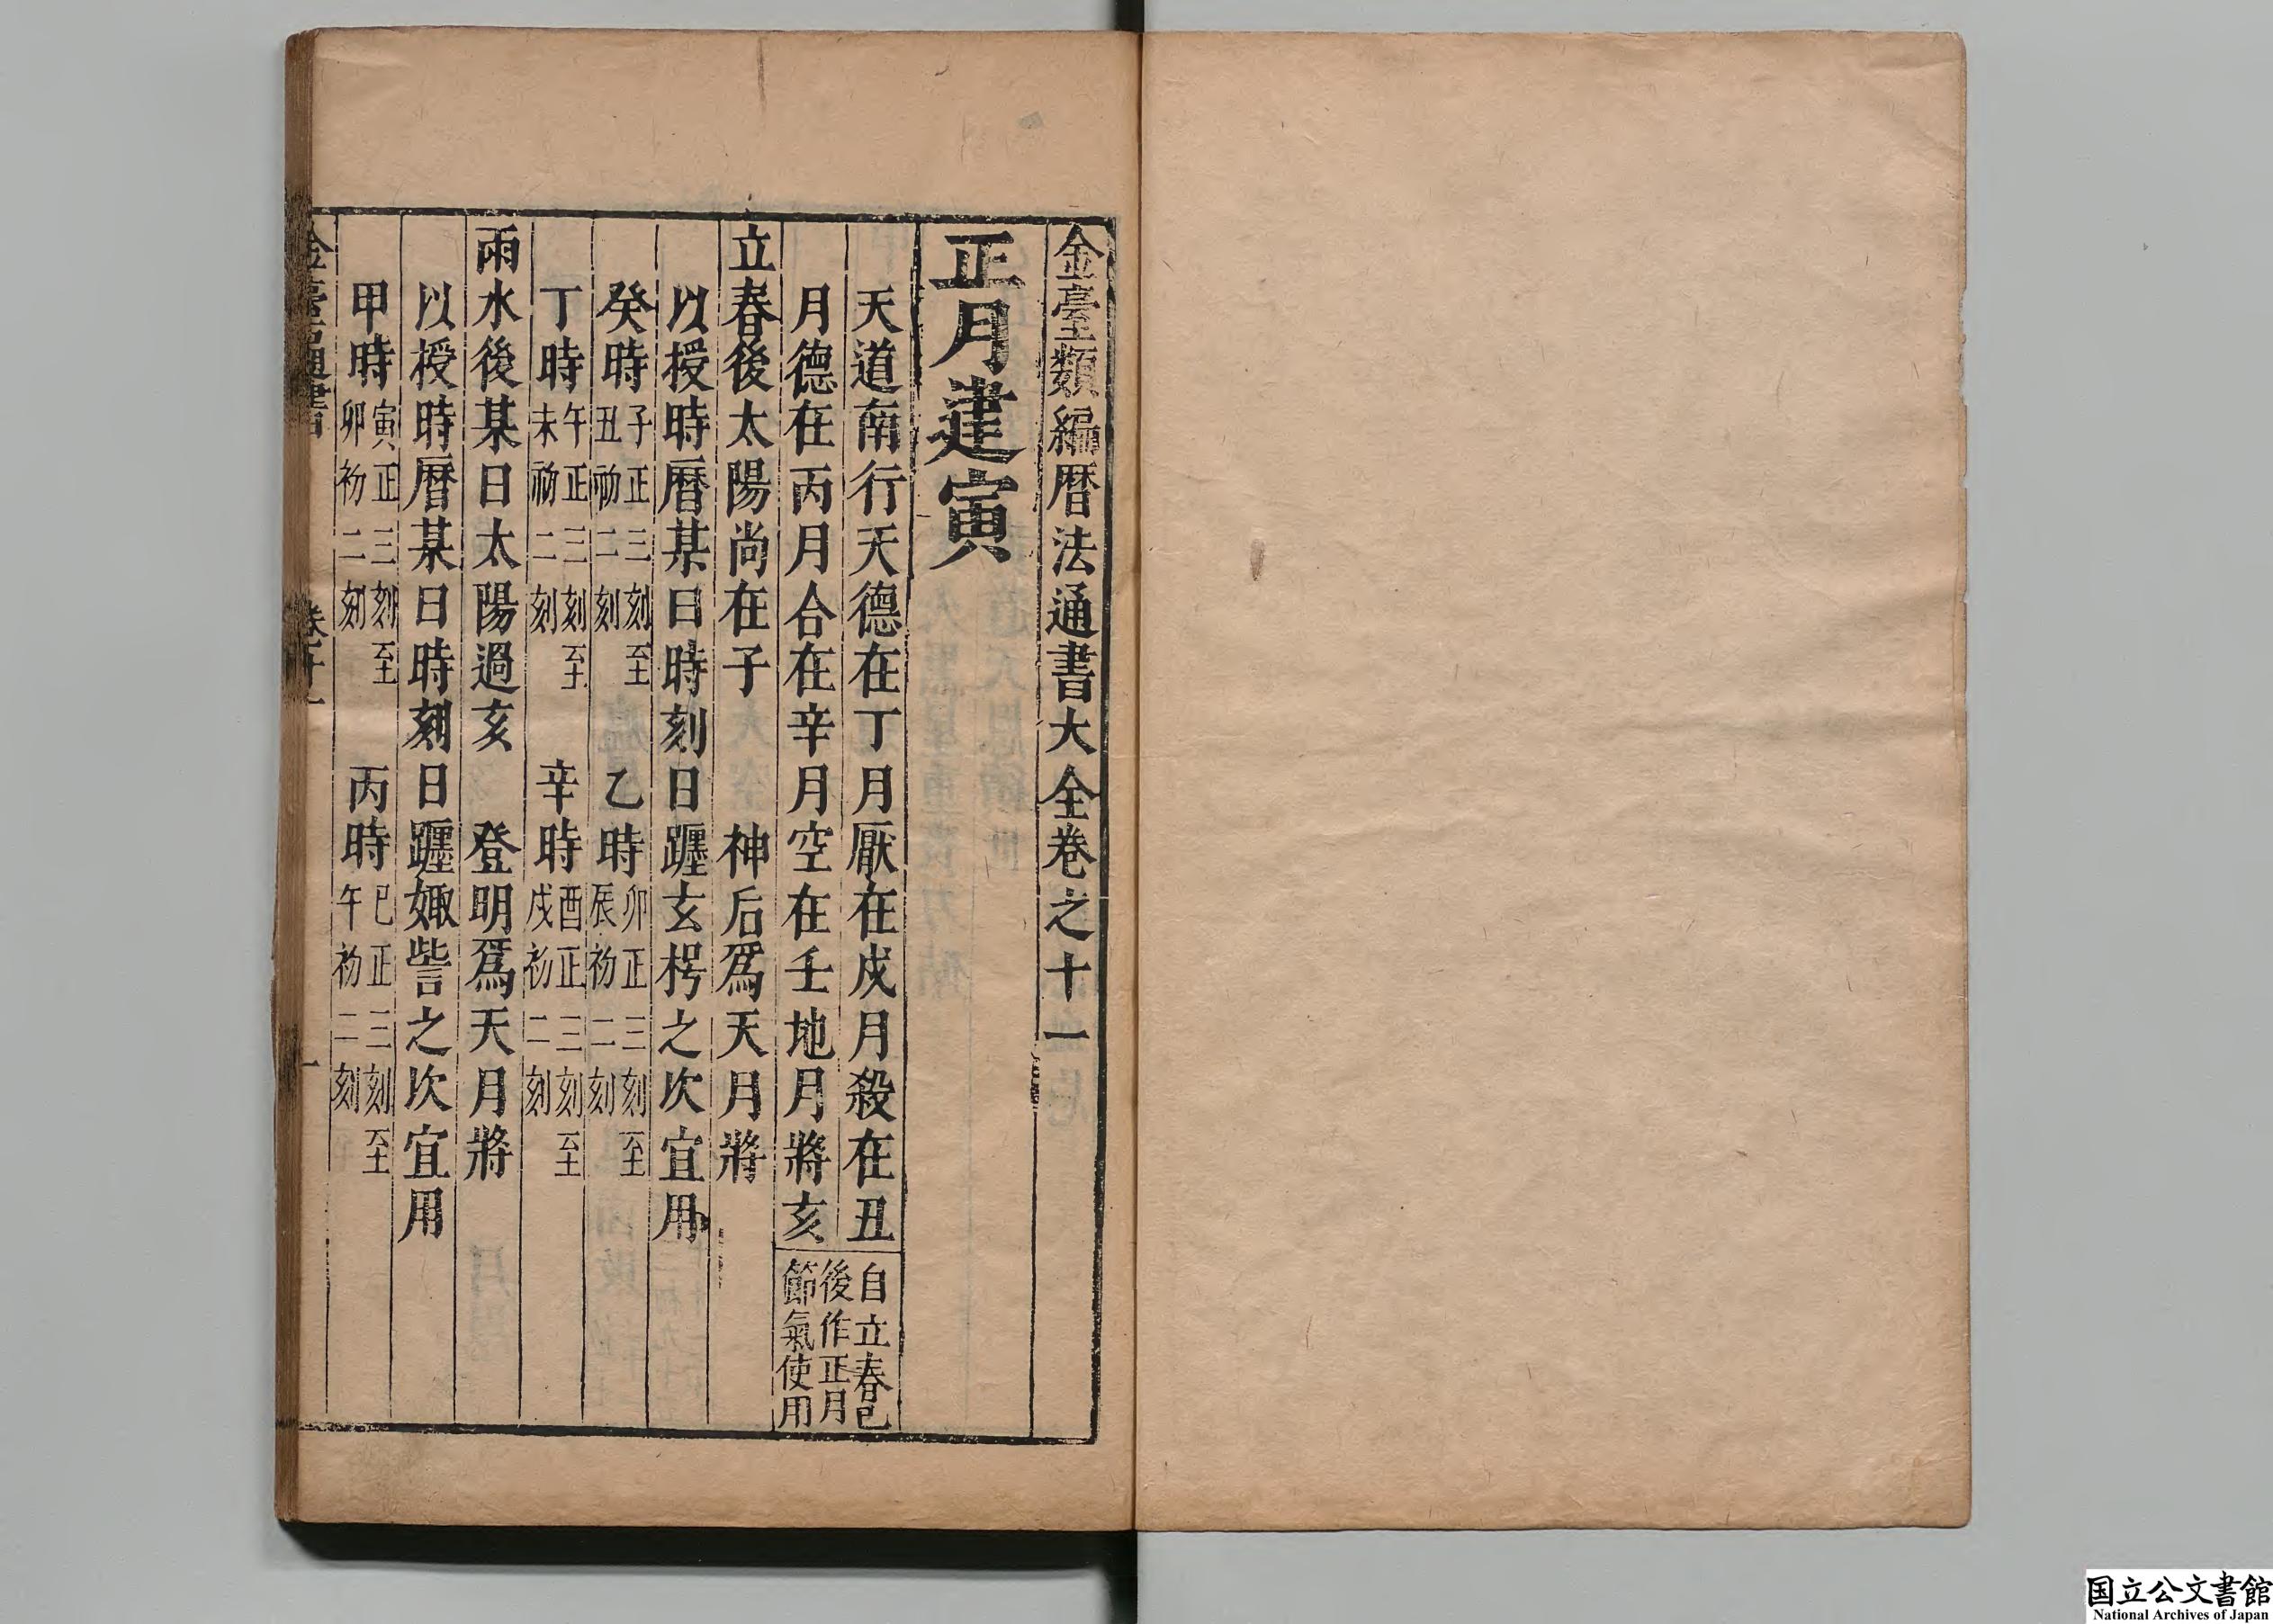 金臺類編暦法通書大全卷之十一
正月建寅
天道南行天德在丁月厭在戌月殺在丑
月德在丙月合在辛月空在壬地月將亥
自立春已
後作正月
節氣使用
立春後太陽尚在子　神后爲天月將
以授時暦某日時刻日躔玄枵之次宜用
癸時子正三刻至丑初二刻　乙時卯正三刻至辰初二刻
丁時午正三刻至未初二刻　辛時酉正三刻至戌初二刻
雨水後某日太陽過亥　登明爲天月將
以授時暦某日時刻日躔娵訾之次宜用
甲時寅正三刻至卯初二刻　丙時巳正三刻至午初二刻
金臺通書　卷十一　一
国立公文書館
National Archives of Japan